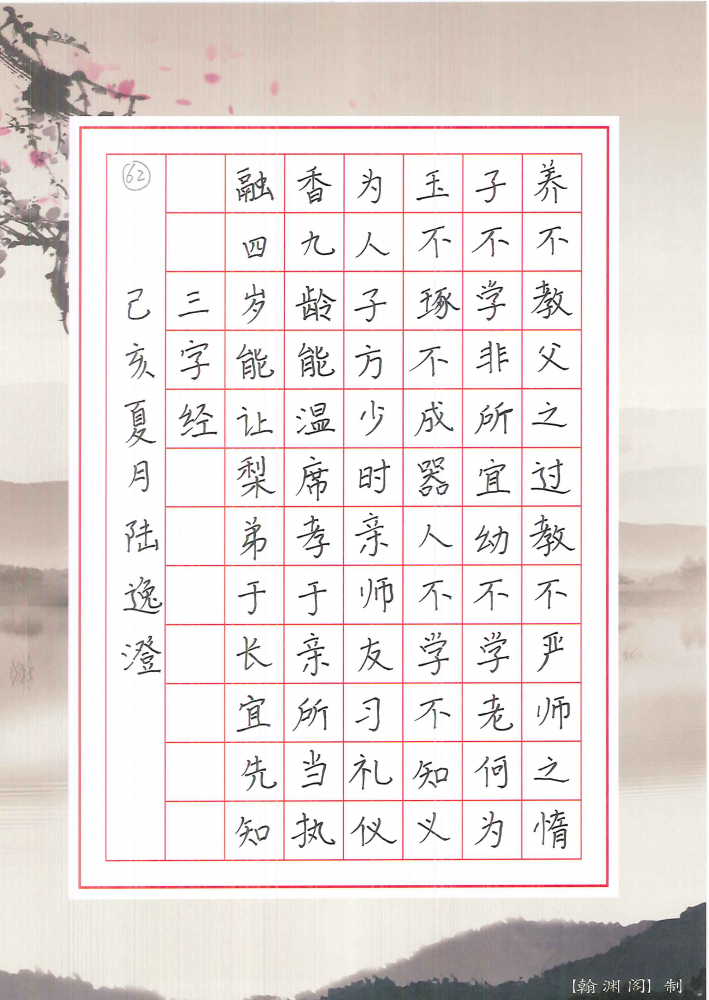 养不教父之过教不严师之惰
子不学非所宜幼不学老何为
玉不琢不成器人不学不知义
为人子方少时亲师友习礼仪
香九龄能温席孝于亲所当执
融四岁能让梨弟于长宜先知
三字经
62
己亥夏月陆逸澄
【翰渊阁】制